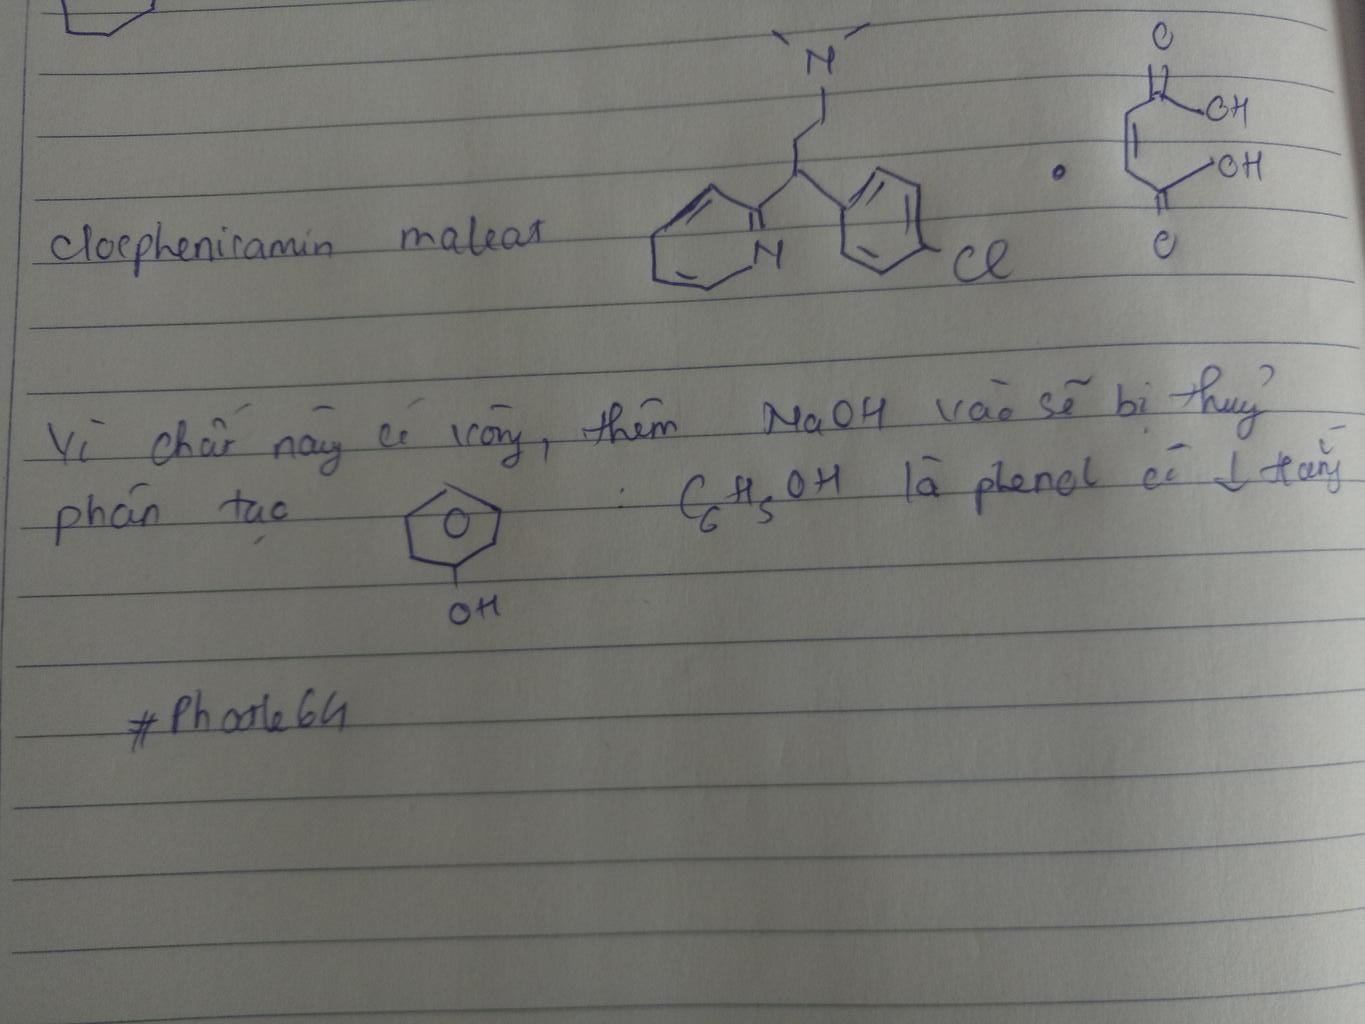 N
O
OH
OH
O
clorpheniramin maleat
N
Cl
Vì chất này có vòng, thêm NaOH vào sẽ bị thuỷ
phân tạo : C6H5OH là phenol có ↓ trắng
OH